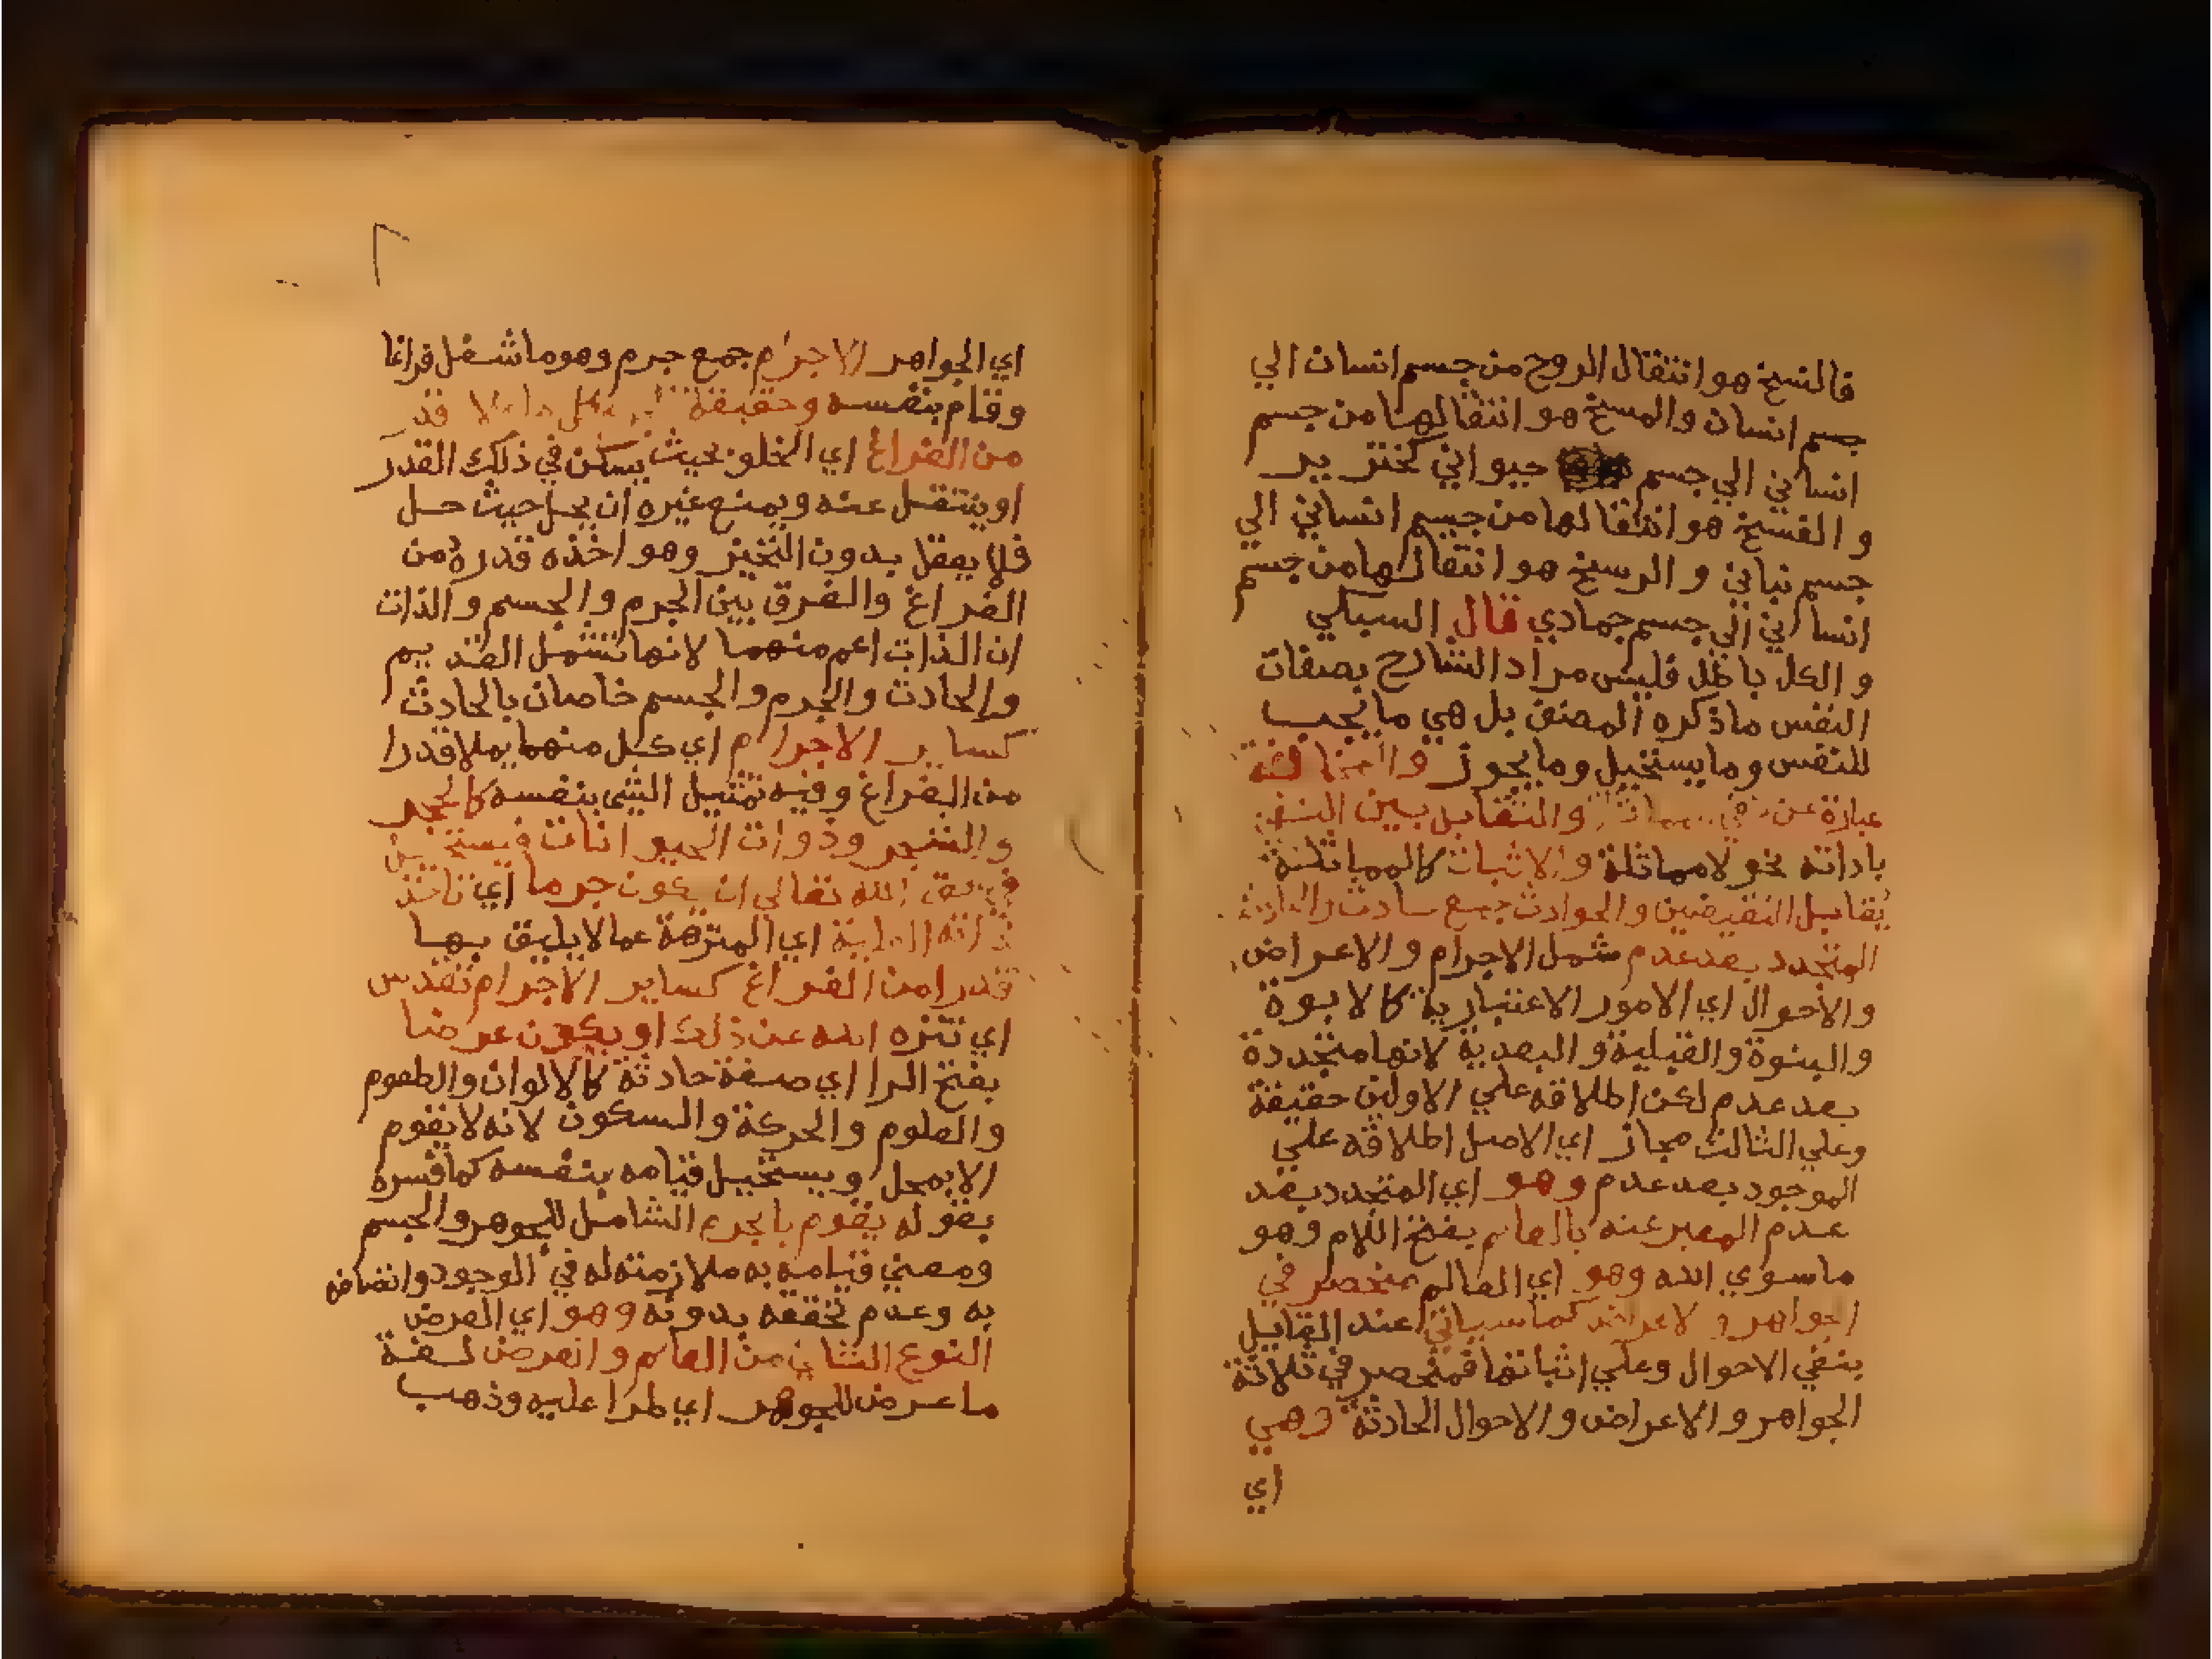 فالنسخ هو انتقال الروح من جسم انسان الي
جسم انسان والمسخ هو انتقالها من جسم
انساني الي جسم حيواني كخنزير
و الفسخ هو انتقالها من جسم انساني الي
جسم نباتي و الرسخ هو انتقالها من جسم
انساني الي جسم جمادي قال السبكي
و الكل باطل فليس مراد الشارح بصفات
النفس ماذكره المصنف بل هي ما يجب
للنفس وما يستحيل وما يجوز والمخالفة
عبارة عن والتقابل بين النفي
باداته نحو لامماثلة والاثبات كالمماثلة
تقابل النقيضين والحوادث جمع حادث والحادث
المتجدد بعد عدم شمل الاجرام و الاعراض
والاحوال اي الامور الاعتبارية كالابوة
والبنوة والقبلية والبعدية لانها متجددة
بعد عدم لكن اطلاقه علي الاولين حقيقة
وعلي الثالث مجاز اي الاصل اطلاقه علي
الموجود بعد عدم وهو اي المتجدد بعد
عدم المعبر عنه بالعالم بفتح اللام وهو
ماسوي الله وهو اي العالم منحصر في
الجواهر و الاعراض كما سياتي عند القايل
بنفي الاحوال وعلي اثباتها فمنحصر في ثلاثة
الجواهر و الاعراض و الاحوال الحادثة وهي
اي
اي الجواهر الاجرام جمع جرم وهو ما شغل فراغا
وقام بنفسه وحقيقة قد
من الفراغ اي الخلو بحيث يسكن في ذلك القدر
او ينتقل عنه ويمنع غيره ان يحل حيث حل
فلا يعقل بدون التحيز وهو اخذه قدره من
الفراغ والفرق بين الجرم والجسم والذات
ان الذات اعم منهما لانها تشمل القديم
والحادث والجرم والجسم خاصان بالحادث
كساير الاجرام اي كل منهما يملا قدرا
من الفراغ وفيه تمثيل الشي بنفسه كالحجر
والشجر وذوات الحيوانات فيستحيل
في حق الله تعالي ان يكون جرما اي تاخذ
ذاته العلية اي المنزهة عما لا يليق بها
قدرا من الفراغ كساير الاجرام تقدس
اي تنزه الله عن ذلك او يكون عرضا
بفتح الرا اي صفة حادثة كالالوان والطعوم
والعلوم والحركة والسكون لانه لا يقوم
الا بمحل ويستحيل قيامه بنفسه كما فسره
بقوله يقوم بالجرم الشامل للجوهر والجسم
ومعني قيامه به ملازمته له في الوجود واتصافه
به وعدم تحققه بدونه وهو اي العرض
النوع الثاني من العالم و العرض لغة
ما عرض للجوهر اي طرا عليه وذهب